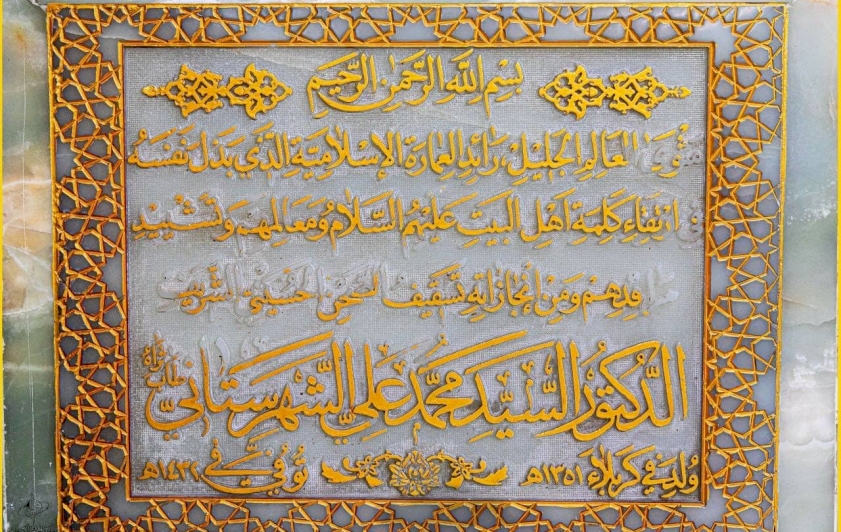 بِسْمِ اللَّهِ الرَّحْمَنِ الرَّحِيمِ
مَثْوَى العَالِمِ الجَلِيْلِ رَائِدِ العِمَارَةِ الإِسْلَامِيَّةِ الَّذِي بَذَلَ نَفْسَهُ
فِي ارْتِقَاءِ كَلِمَةِ اَهْلِ البَيْتِ عَلَيْهِمُ السَّلَامُ وَمَعَالِمِهِمْ وَتَشْيِيْدِ
مَرَاقِدِهِمْ وَمِنْ إِنْجَازَاتِهِ تَسْقِيْفُ الصَّحْنِ الحُسَيْنِيِّ الشَّرِيْفِ
الدُّكْتُورُ السَّيِّدُ مُحَمَّدُ عَلِيّ الشَّهْرِسْتَانِيّ طَابَ ثَرَاهُ
وُلِدَ فِي كَرْبَلَاءَ ١٣٥١هـ تُوُفِّيَ فِي ١٤٣٢هـ